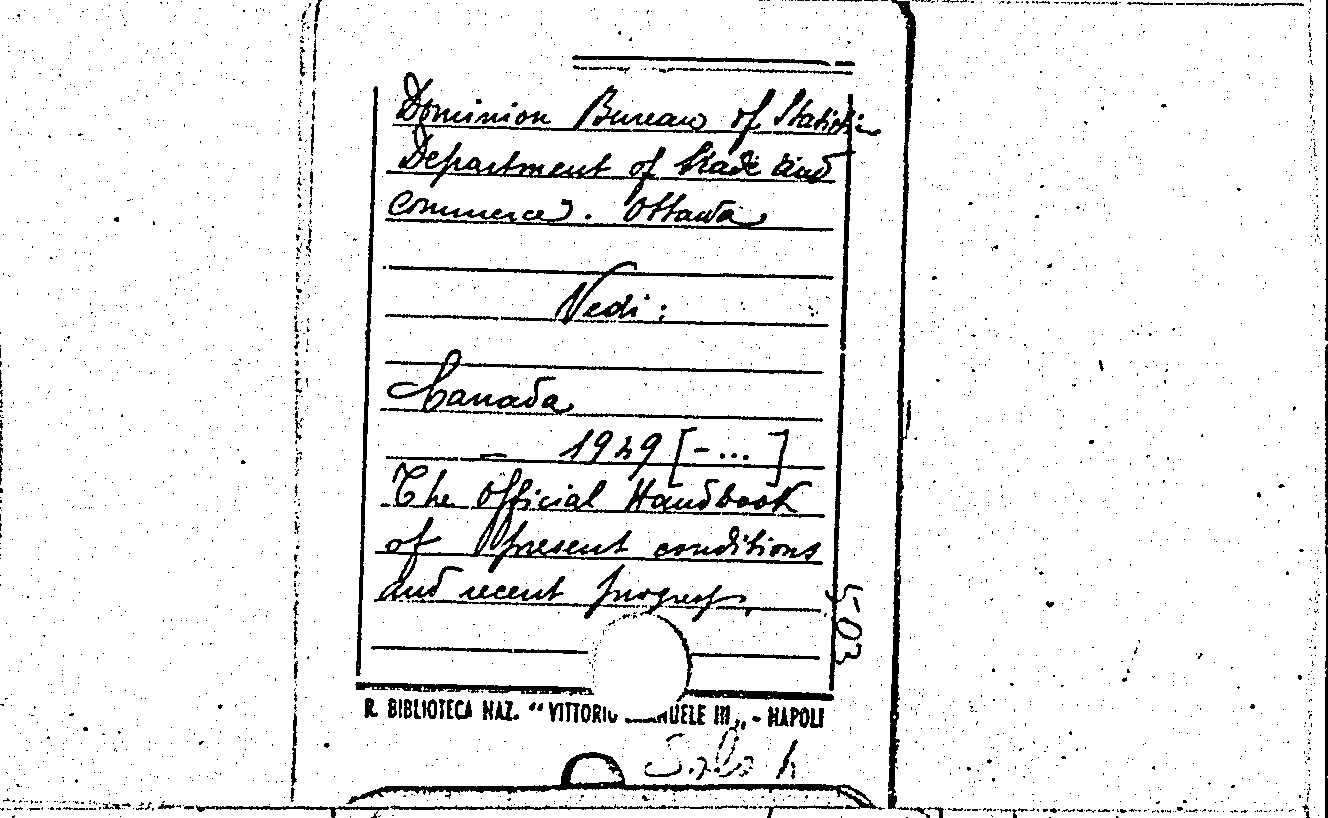 Dominion Bureau of Statistic
Department of Trade and
Commerce. Ottawa
Vedi:
Canada
– 1929 [-...]
The Official Handbook
of present conditions
and recent progress,
5-03
R. BIBLIOTECA NAZ. “VITTORIO EMANUELE III„ - NAPOLI
Solo